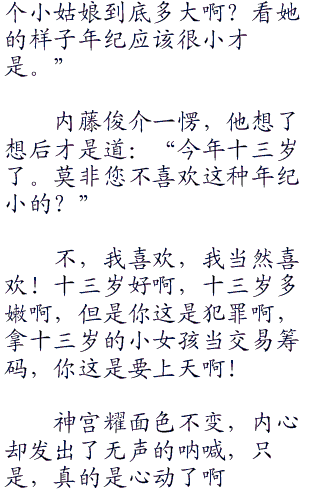 个小姑娘到底多大啊？看她
的样子年纪应该很小才
是。”
内藤俊介一愣，他想了
想后才是道：“今年十三岁
了。莫非您不喜欢这种年纪
小的？”
不，我喜欢，我当然喜
欢！十三岁好啊，十三岁多
嫩啊，但是你这是犯罪啊，
拿十三岁的小女孩当交易筹
码，你这是要上天啊！
神宫耀面色不变，内心
却发出了无声的呐喊，只
是，真的是心动了啊